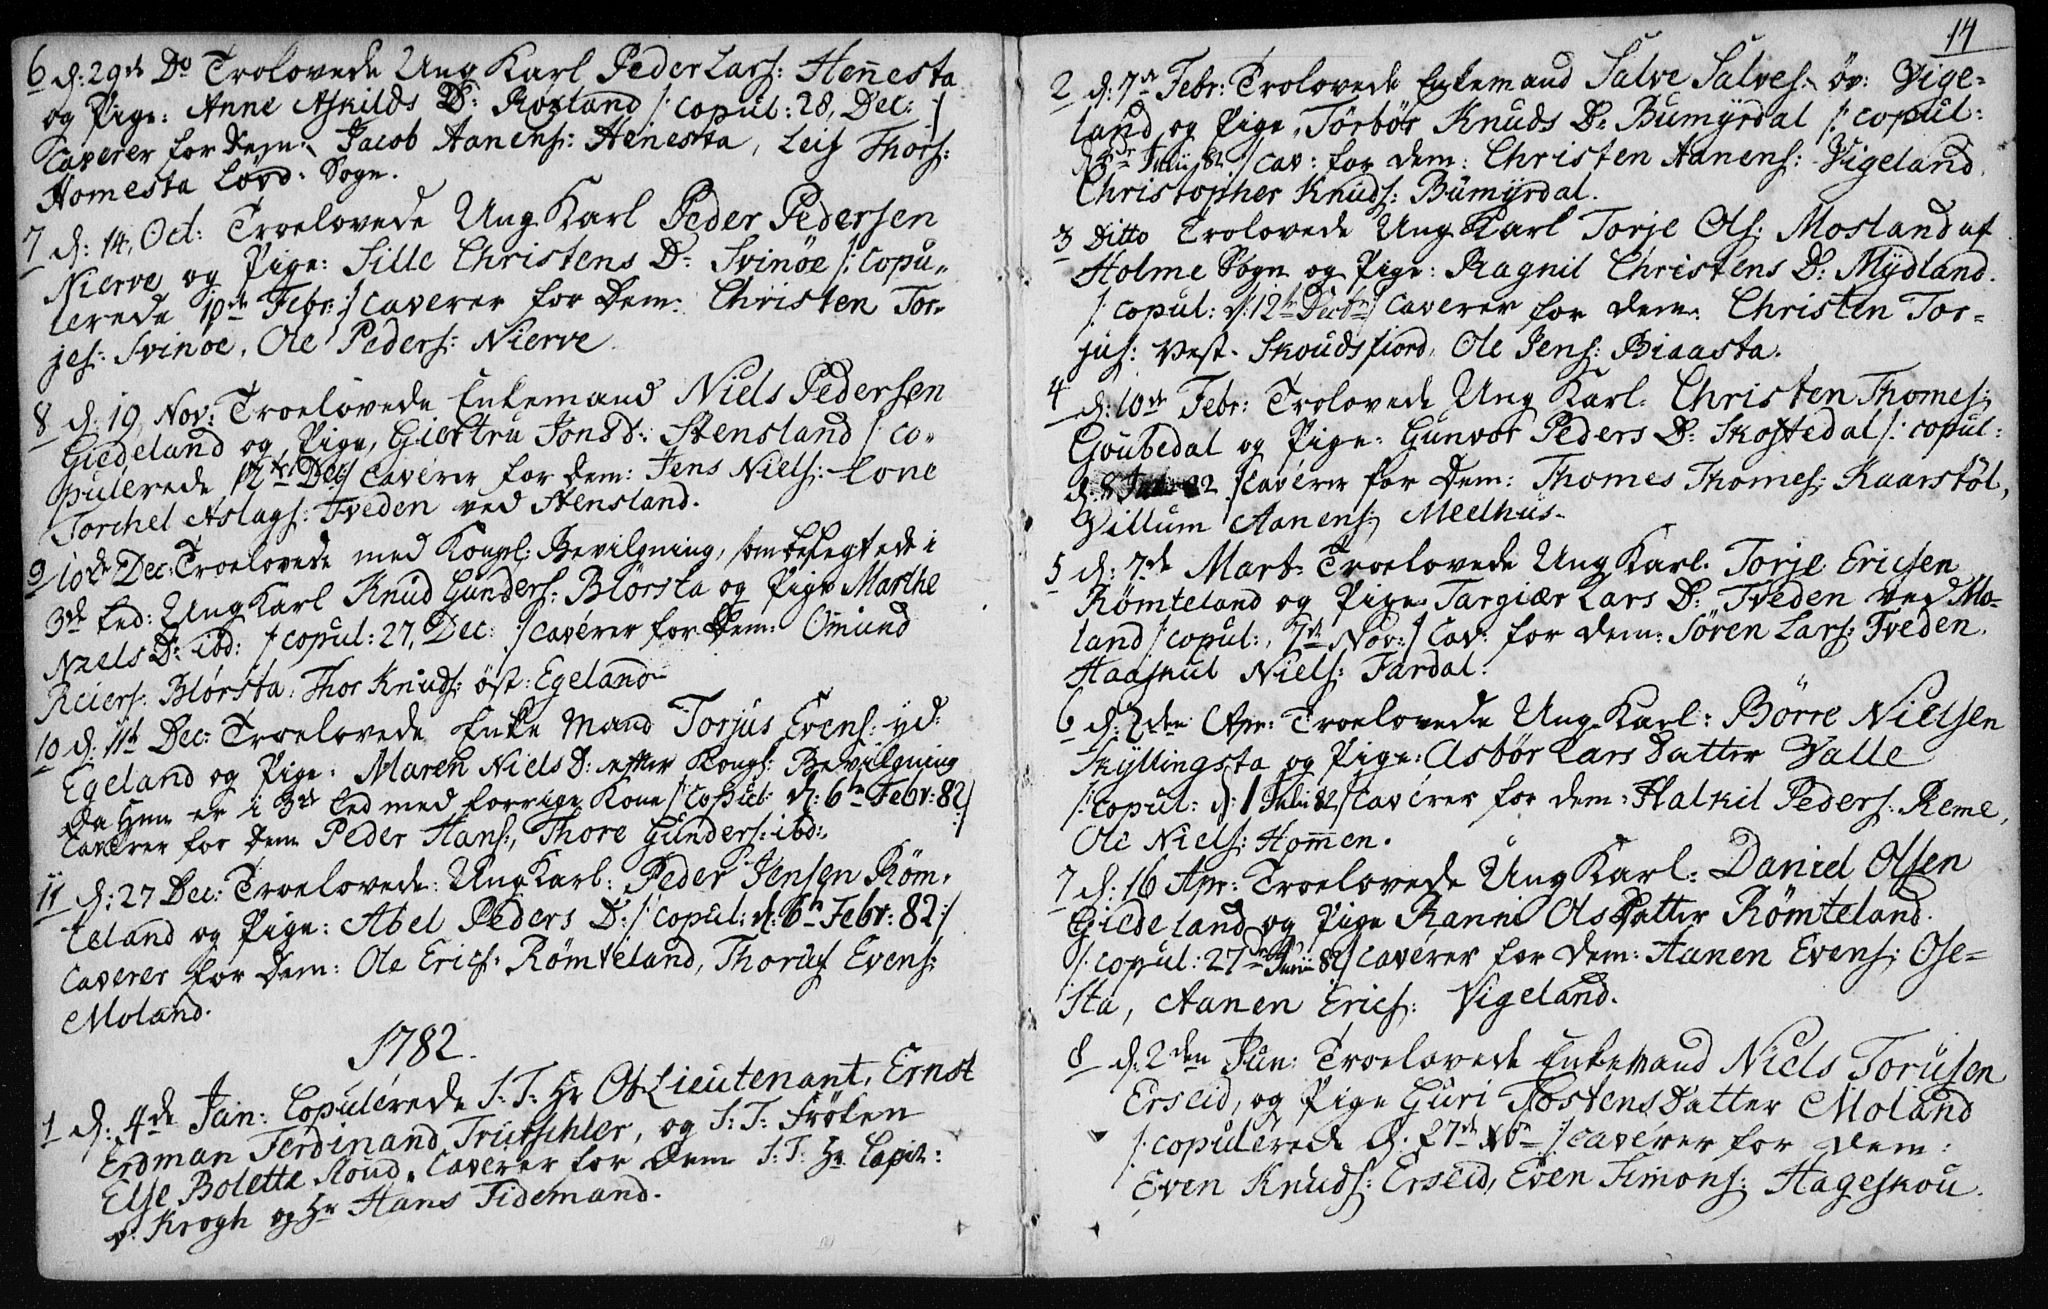 6 d: 29de Do Trolovede Ung Karl Peder Lars: Hennesta
og Pige: Anne Askilds D: Rosland /: copul: 28, Dec: /
Caverer for Dem: Jacob Aanens: Henesta, Leif Thors:
Homesta Løvd: Sogn.
7 d: 14, Oct: Troelovede Ung Karl Peder Pedersen
Nierve og Pige: Sille Christens D: Svinøe /: Copu„
lerede Febr: / caverer for Dem: Christen Tor„
jes: Svinøe, Ole Peders: Nierve
8 d: 19, Nov: Troelovede Enkemand Niels Pedersen
Giedeland og Pige, Giertru Jonsd: Stensland / co„
pulerede 12te Dec / caverer for dem: Jens Niels: Lone
Torchel Aslags: Tveden ved Stensland.
9 10de Dec: Troelovede med Kongl: Bevilgning, som beslegtede i
3de Led: Ung Karl Knud Gunders: Blörsta og Pige Marthe
Niels D: ibd: /: copul: 27, Dec: :/ caverer for Dem: Omund
Reiers: Blørsta, Thor Knuds: öst: Egeland
10 d: 11te Dec: Troelovede Enke Mand Torjus Evens: yd:
Egeland og Pige: Maren Niels D: efter Kongl: Bevilgning
da Hun er i 3de Led med forrige Kone /: Copul: d: 6te Febr: 82 /
Caverer for Dem Peder Hans:, Thore Gunders: ibd:
11 d: 27 Dec: Troelovede: Ung Karl: Peder Jensen Röm„
teland og Pige: Abel Peders D: /: copul: d: 6te Febr: 82 :/
Caverer for Dem: Ole Erics: Römteland, Thorus Evens:
Moland.
1782.
1 d: 4de Jan: Copulerede S: T: Hr Ob: Lieutenant, Ernst
Erdman Ferdinand Trutschler, og S: T: Frøken
Else Bolette Stoud. Caverer for Dem S: T: Hr Capit:
v: Krogh og Hr Hans Tidemand.
14
2 d: 7de Febr: Trolovede Enkemand Salve Salves: öv: Vige-
land og Pige, Törbör Knuds D: Bumyrdal /: copul:
82 / cav: for dem: Christen Aanens: Vigeland,
Christopher Knuds: Bumyrdal.
3 Ditto Trolovede Ung Karl Torje Ols: Mosland af
Holme Sogn og Pige: Ragnil Christens D: Mydland.
/: copul: d: 12te / Caverer for dem: Christen Tor-
jus: Vest- Skoudsfiord, Ole Jens: Biaasta.
4 d: 10de Febr: Trolovede Ung Karl: Christen Thomes:
Goubedal og Pige: Gunvor Peders D: Skoftedal /: copul:
d: 8 / caverer for Dem: Thomes Thomes: Kaarstøl,
Villum Aanens: Meelhus.
5 d: 7de Mart: Troelovede Ung Karl: Torje Ericsen
Römteland og Pige: Targiær Lars D: Tveden ved Mo-
land / copul:, 7de Nov: / Cav: for dem: Sören Lars: Tveden,
Haaskul Niels: Fardal.
6 d: 2den Apr: Troelovede Ung Karl: Börre Nielsen
Kyllingsta og Pige: Asbör Lars Datter Valle
/: copul: d: 1 82 / caverer for dem: Halkil Peders: Reme,
Ole Niels: Hommen.
7 d: 16 Apr: Troelovede Ung Karl: Daniel Olsen
Giedeland og Pige Ranni Ols Datter Römteland.
/: copul: 27de 82 / caverer for Dem: Aanen Evens: Ose-
sta, Aanen Erics: Vigeland.
8 d: 2den Jun: Troelovede Enkemand Niels Torusen
Erseid, og Pige Guri Tostens Datter Moland
/: copulerede d: 27de :/ caverer for dem:
Even Knuds: Erseid, Even Simons: Hageskou.